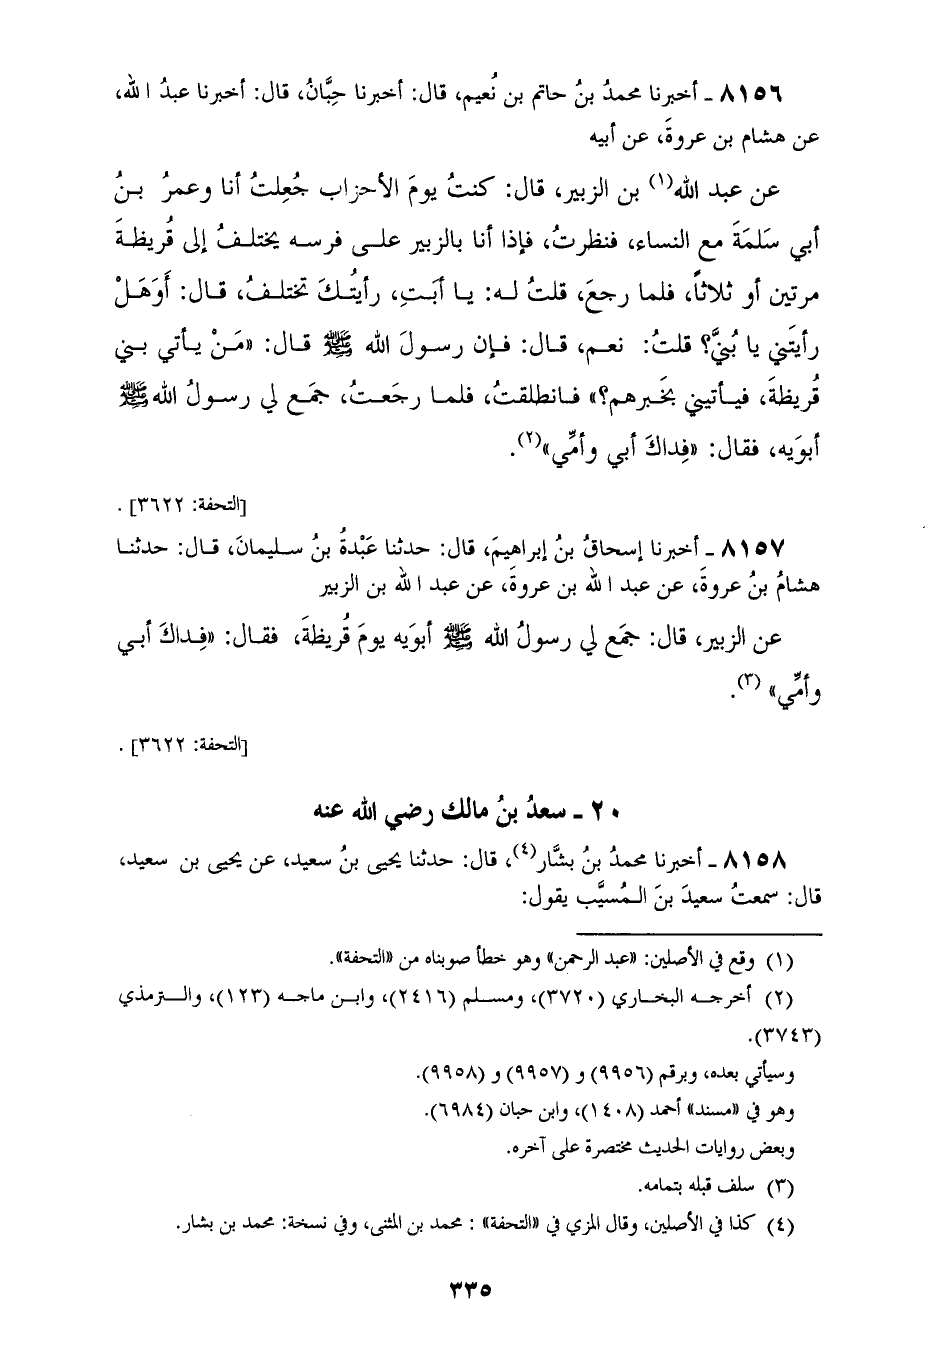 ٨١٥٦ ـ أخبرنا محمدُ بنُ حاتم بن نُعيم، قال: أخبرنا حِبَّانُ، قال: أخبرنا عبدُ الله،
عن هشام بن عروةَ، عن أبيه
عن عبد الله(١) بن الزبير، قال: كنتُ يومَ الأحزاب جُعِلتُ أنا وعمرُ بنُ
أبي سَلَمَةَ مع النساء، فنظرتُ، فإذا أنا بالزبير على فرسه يختلفُ إلى قُريظةَ
مرتين أو ثلاثاً، فلما رجعَ، قلتُ له: يا أبَتِ، رأيتُكَ تختلفُ، قال: أَوَهَلْ
رأيتَني يا بُنيَّ؟ قلتُ: نعم، قال: فإن رسولَ الله ﷺ قال: «مَنْ يأتي بني
قُريظةَ، فيأتيني بخَبرهم؟» فانطلقتُ، فلما رجَعتُ، جمَع لي رسولُ الله ﷺ
أبوَيه، فقال: «فِداكَ أبي وأمِّي»(٢).
[التحفة: ٣٦٢٢] .
٨١٥٧ ـ أخبرنا إسحاقُ بنُ إبراهيمَ، قال: حدثنا عَبْدةُ بنُ سليمانَ، قال: حدثنا
هشامُ بنُ عروةَ، عن عبد الله بن عروةَ، عن عبد الله بن الزبير
عن الزبير، قال: جمَع لي رسولُ الله ﷺ أبوَيه يومَ قُريظةَ، فقال: «فِداكَ أبي
وأمِّي» (٣).
[التحفة: ٣٦٢٢] .
٢٠ ـ سعدُ بنُ مالك رضي الله عنه
٨١٥٨ ـ أخبرنا محمدُ بنُ بشَّار(٤)، قال: حدثنا يحيى بنُ سعيد، عن يحيى بن سعيد،
قال: سمعتُ سعيدَ بنَ المُسيَّب يقول:
(١) وقع في الأصلين: «عبد الرحمن» وهو خطأ صوبناه من «التحفة».
(٢) أخرجه البخاري (٣٧٢٠)، ومسلم (٢٤١٦)، وابن ماجه (١٢٣)، والترمذي
(٣٧٤٣).
وسيأتي بعده، وبرقم (٩٩٥٦) و (٩٩٥٧) و (٩٩٥٨).
وهو في «مسند» أحمد (١٤٠٨)، وابن حبان (٦٩٨٤).
وبعض روايات الحديث مختصرة على آخره.
(٣) سلف قبله بتمامه.
(٤) كذا في الأصلين، وقال المزي في «التحفة» : محمد بن المثنى، وفي نسخة: محمد بن بشار.
٣٣٥